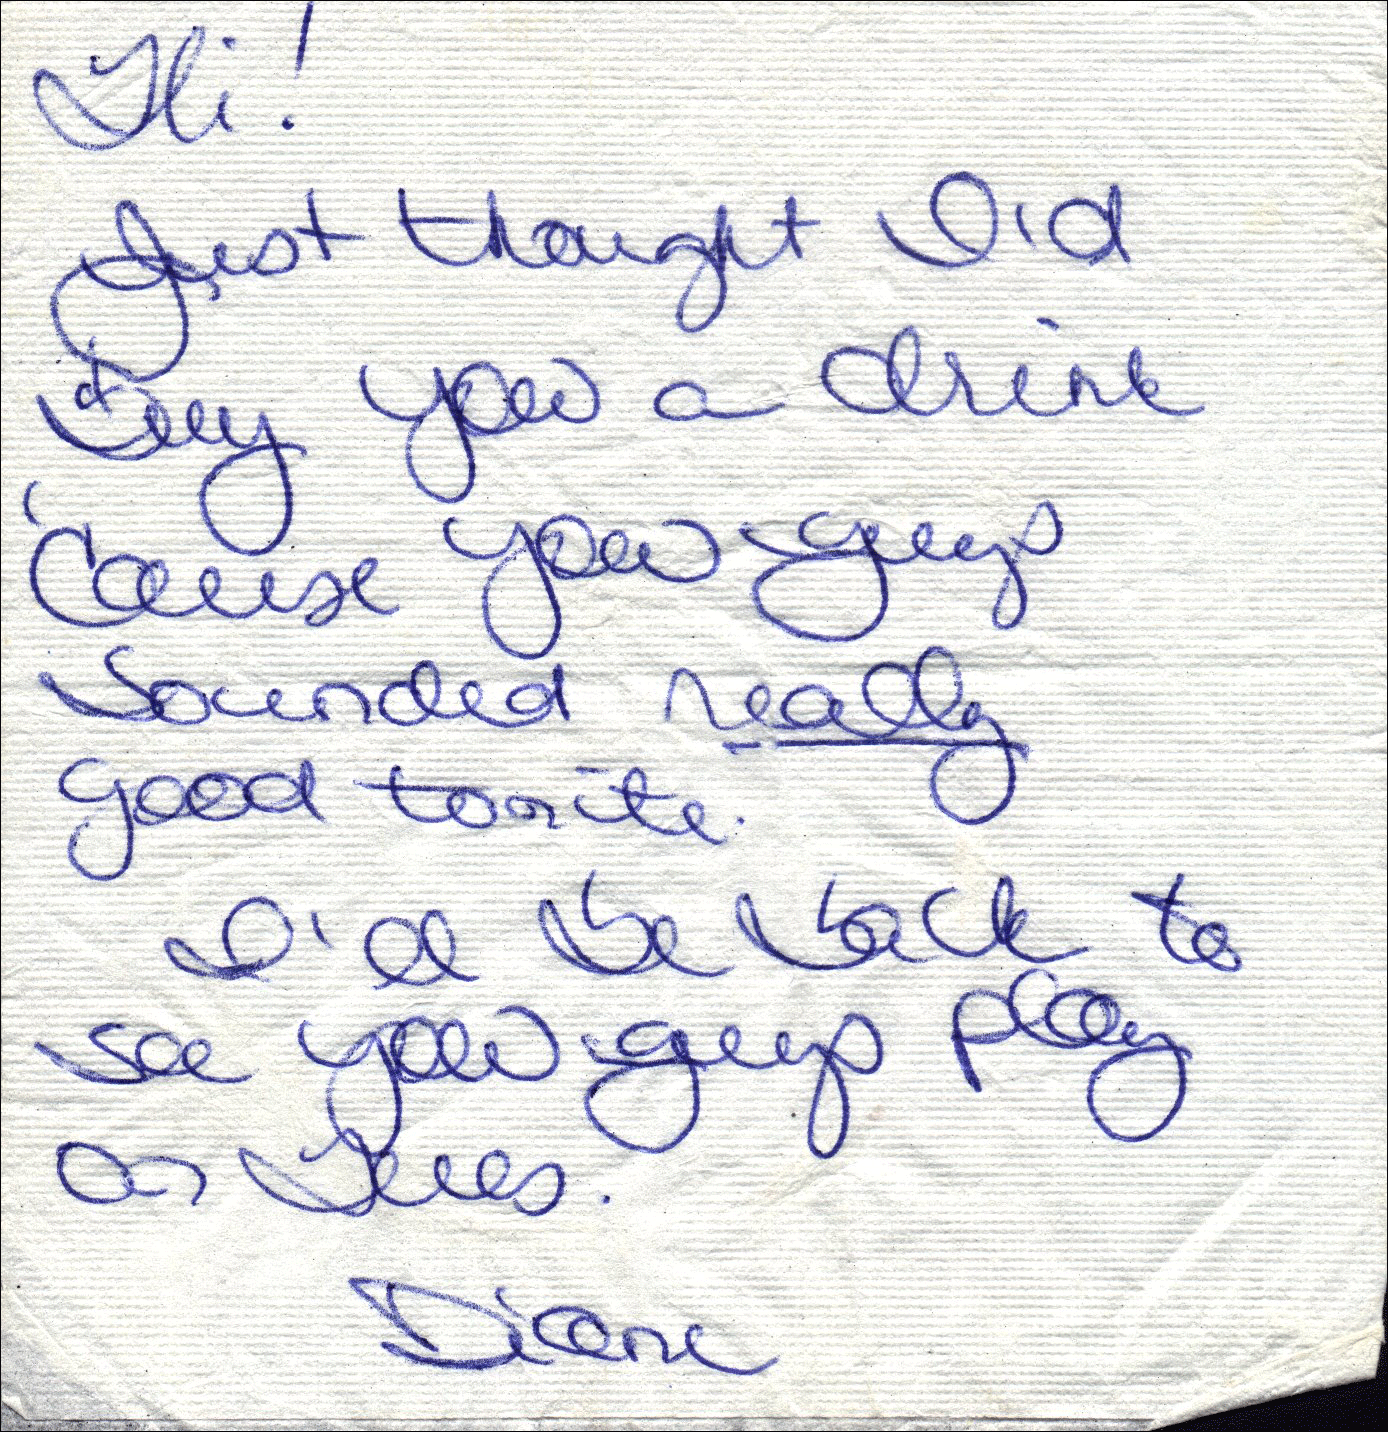 Hi!
Just thought I'd
buy you a drink
'Cause you guys
sounded really
good tonite.
I'll be back to
see you guys play
on Tues.
Diane